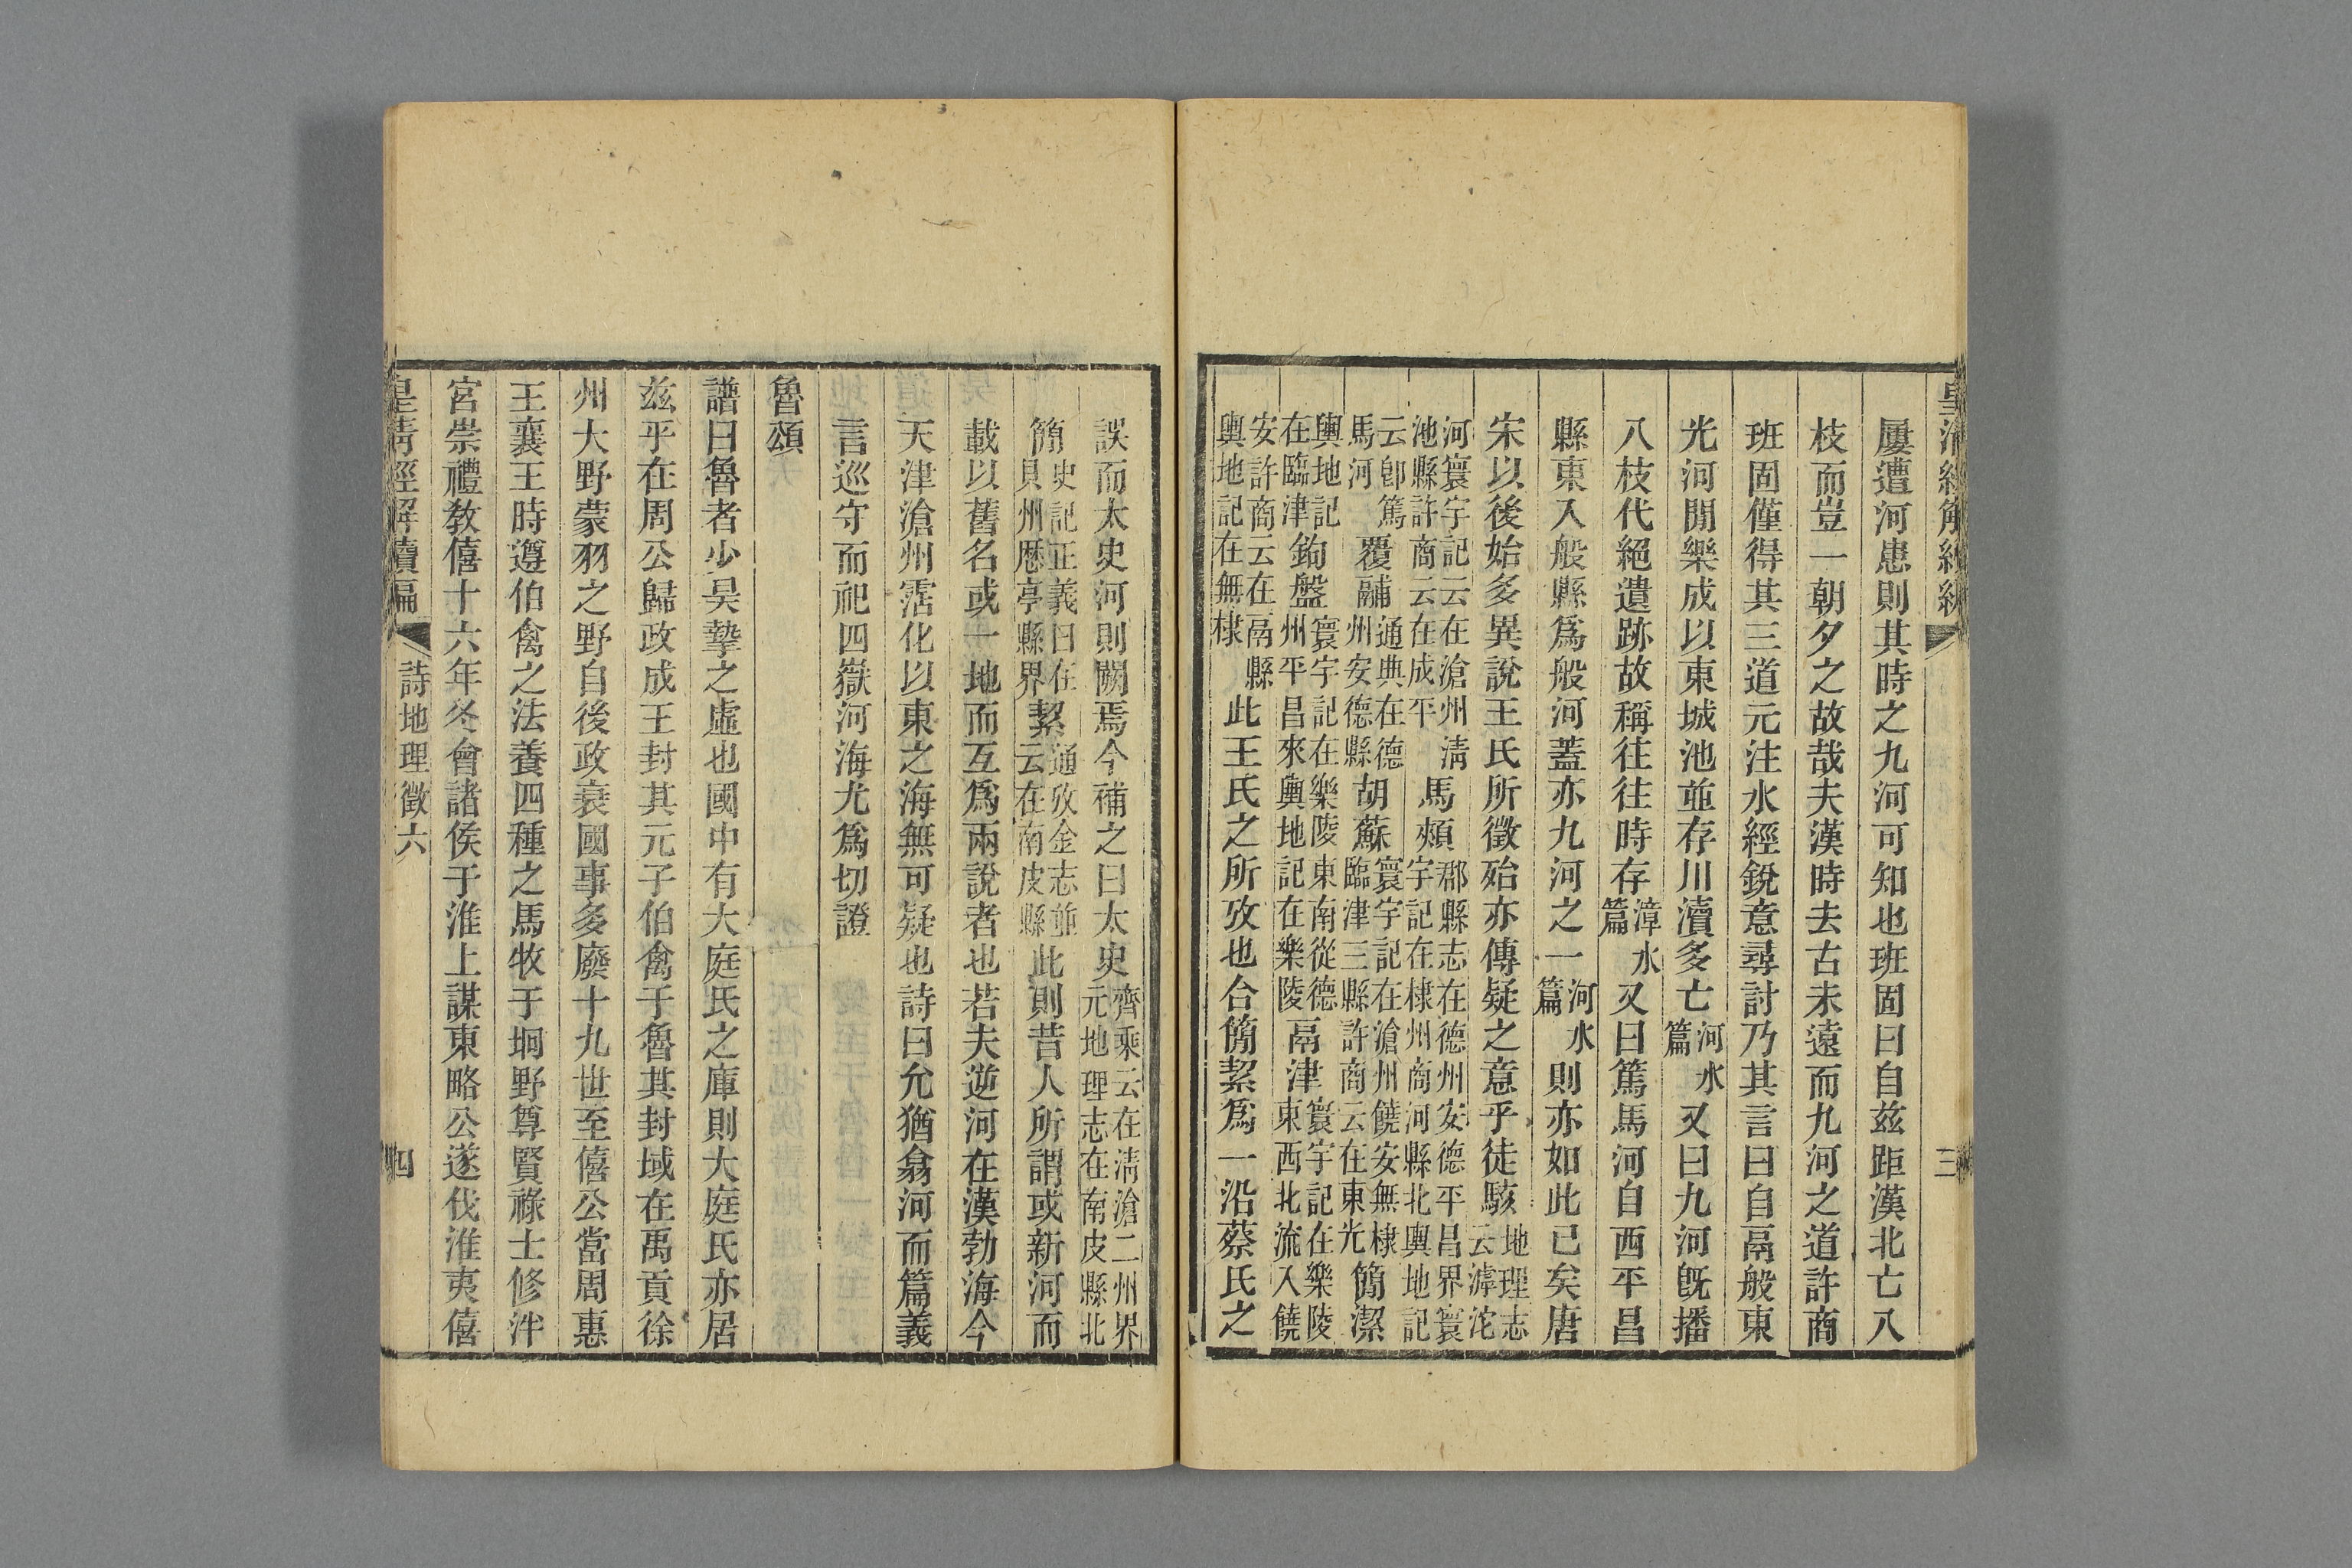 皇清經解續編
三
屢遭河患則其時之九河可知也班固曰自兹距漢北亡八
枝而豈一朝夕之故哉夫漢時去古未遠而九河之道許商
班固僅得其三道元注水經銳意尋討乃其言曰自鬲般東
光河閒樂成以東城池並存川瀆多亡河水篇又曰九河旣播
八枝代絕遺跡故稱往往時存漳水篇又曰篤馬河自西平昌
縣東入般縣爲般河蓋亦九河之一河水篇則亦如此已矣唐
宋以後始多異說王氏所徵殆亦傳疑之意乎徒駭地理志云滹沱
河寰宇記云在滄州淸池縣許商云在成平馬頰郡縣志在德州安德平昌界寰宇記在棣州商河縣北輿地記
云卽篤馬河覆鬴通典在德州安德縣胡蘇寰宇記在滄州饒安無棣臨津三縣許商云在東光簡潔
輿地記在臨津鉤盤寰宇記在樂陵東南從德州平昌來輿地記在樂陵鬲津寰宇記在樂陵東西北流入饒
安許商云在鬲縣輿地記在無棣此王氏之所攷也合簡絜爲一沿蔡氏之
誤而太史河則闕焉今補之曰太史齊乘云在淸滄二州界元地理志在南皮縣北
簡史記正義曰在貝州歴亭縣界絜通攷金志並云在南皮縣此則昔人所謂或新河而
載以舊名或一地而互爲兩說者也若夫逆河在漢勃海今
天津滄州霑化以東之海無可疑也詩曰允猶翕河而篇義
言巡守而祀四嶽河海尤爲切證
魯頌
譜曰魯者少昊摯之虛也國中有大庭氏之庫則大庭氏亦居
兹乎在周公歸政成王封其元子伯禽于魯其封域在禹貢徐
州大野蒙羽之野自後政衰國事多廢十九世至僖公當周惠
王襄王時遵伯禽之法養四種之馬牧于坰野尊賢祿士修泮
宮崇禮敎僖十六年冬會諸侯于淮上謀東略公遂伐淮夷僖
皇清經解續編
詩地理徵六
四